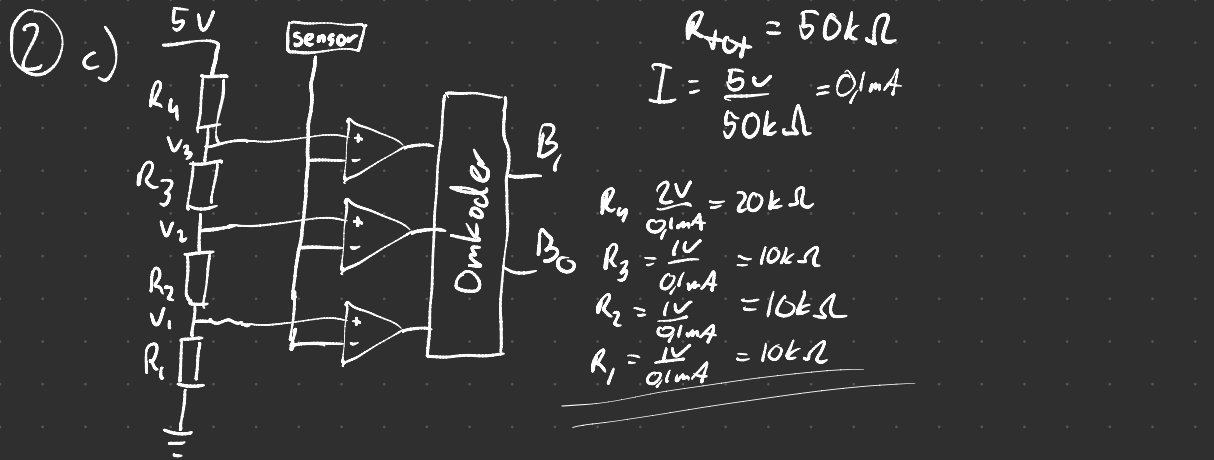 ② c)
5V
sensor
R₄
V₃
R₃
V₂
R₂
V₁
R₁
+
-
+
-
+
-
Omkoder
B₁
B₀
R_tot = 50kΩ
I = 5V / 50kΩ = 0,1mA
R₄ 2V / 0,1mA = 20kΩ
R₃ = 1V / 0,1mA = 10kΩ
R₂ = 1V / 0,1mA = 10kΩ
R₁ = 1V / 0,1mA = 10kΩ